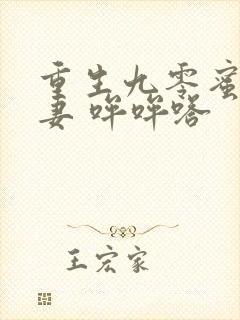 重生九零蜜
妻 咩咩嗒
王宏家